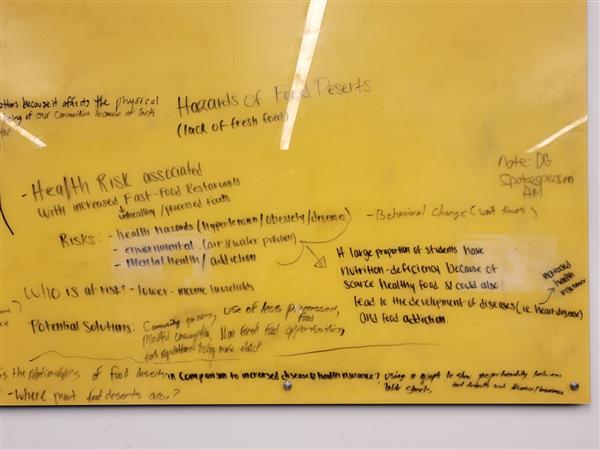 atters because it affects the physical
being of our communities because of lack
Hazards of Food Deserts
(lack of fresh food)
- Health Risk associated
with increased Fast-Food Restaurants
unhealthy/processed foods
Note: DG
Spokesperson
AM
Risks: - health hazards (hypertension/obesiety/diseases)
- enviornmental (air & water pollution)
- Mental health / addiction
- Behavioral Change (wait times)
A large proportion of students have
nutrition-deficiency because of
scarce healthy food. It could also
lead to the development of diseases (ie. heart disease)
and food addiction.
increased
health
insurance
Who is at risk? - lower-income households
Potential Solutions: Community gardens, use of less processed food,
mindful consumption, More fresh food opportunities,
food being more strict
is the relationships of food deserts in comparison to increased disease/health insurance? Using a graph to show proportionality between
food deserts and disease/insurance
- Where most food deserts occur?